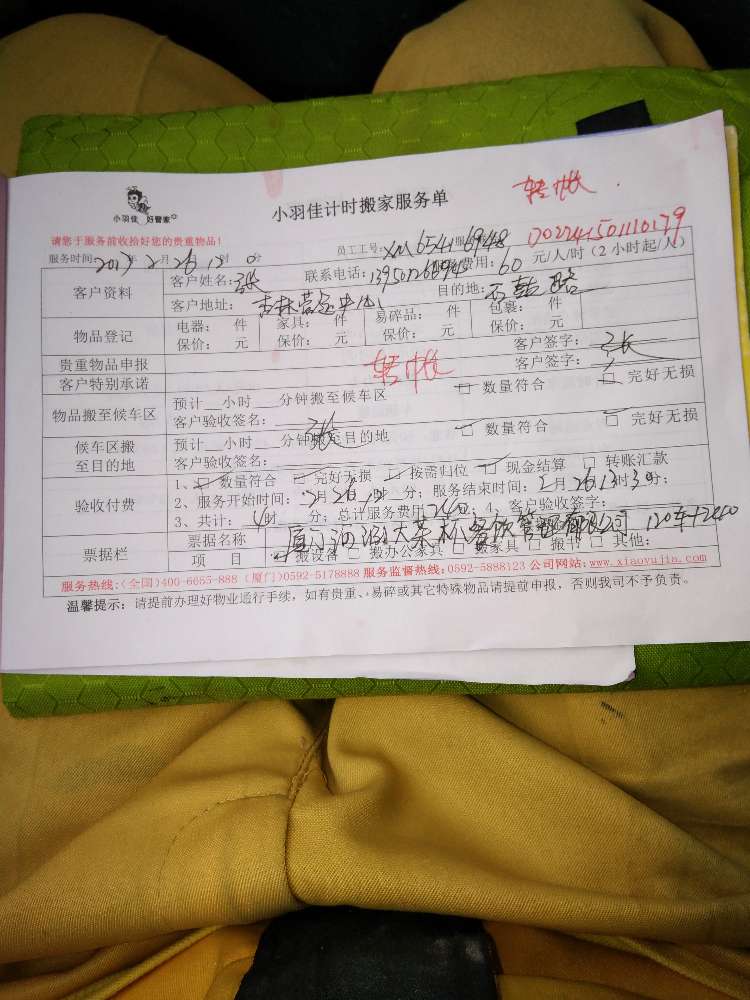 小羽佳 好管家
小羽佳计时搬家服务单
转帐
请您于服务前收拾好您的贵重物品!
员工工号: XM 6541 6948
D0224150110179
服务时间: 2017年2月26日
费用: 60 元/人/时(2小时起/人)
客户资料 客户姓名: 张 联系电话:
客户地址: 目的地:
物品登记 电器: 件 家具: 件 易碎品: 件 包裹: 件
保价: 元 保价: 元 保价: 元 保价: 元
贵重物品申报 客户签字: 张
客户特别承诺 转帐 客户签字:
物品搬至候车区 预计__小时__分钟搬至候车区 □ 数量符合 □ 完好无损
客户验收签名: 张
候车区搬至目的地 预计__小时__分钟搬至目的地 □ 数量符合 □ 完好无损
客户验收签名:
验收付费 1、□ 数量符合 □ 完好无损 □ 按需归位 □ 现金结算 □ 转账汇款
2、服务开始时间: 2月26日 时 分; 服务结束时间: 2月26日13时30分;
3、共计: 4时 分; 总计服务费用 240; 4、客户验收签字:
票据栏 票据名称 厦门 大茶杯餐饮管理有限公司 120车+240
项 目 □ 搬设备 □ 搬办公家具 □ 搬家具 □ 搬书 □ 其他:
服务热线:(全国)400-6655-888 (厦门)0592-5178888 服务监督热线:0592-5888123 公司网站:www.xiaoyujia.com
温馨提示: 请提前办理好物业通行手续, 如有贵重、易碎或其它特殊物品请提前申报, 否则我司不予负责。